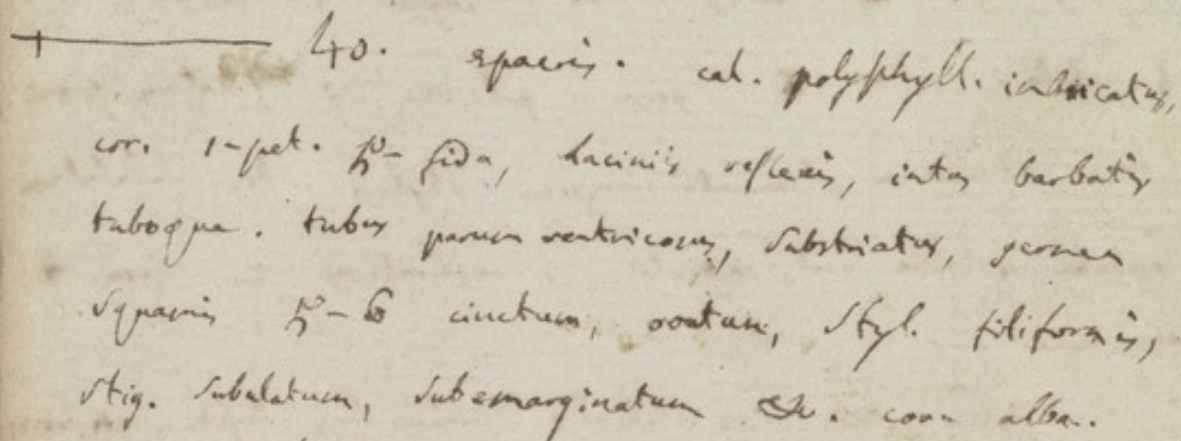 40. epacris. cal. polyphyll. imbricatus,
cor. 1-pet. 5-fida, laciniis reflexis, intus barbatis
tuboque. tubus parum ventricosus, substriatus, germen
squamis 5-6 cinctum, ovatum, Styl. filiformis,
stig. subulatum, subemarginatum &c. cor. alba.